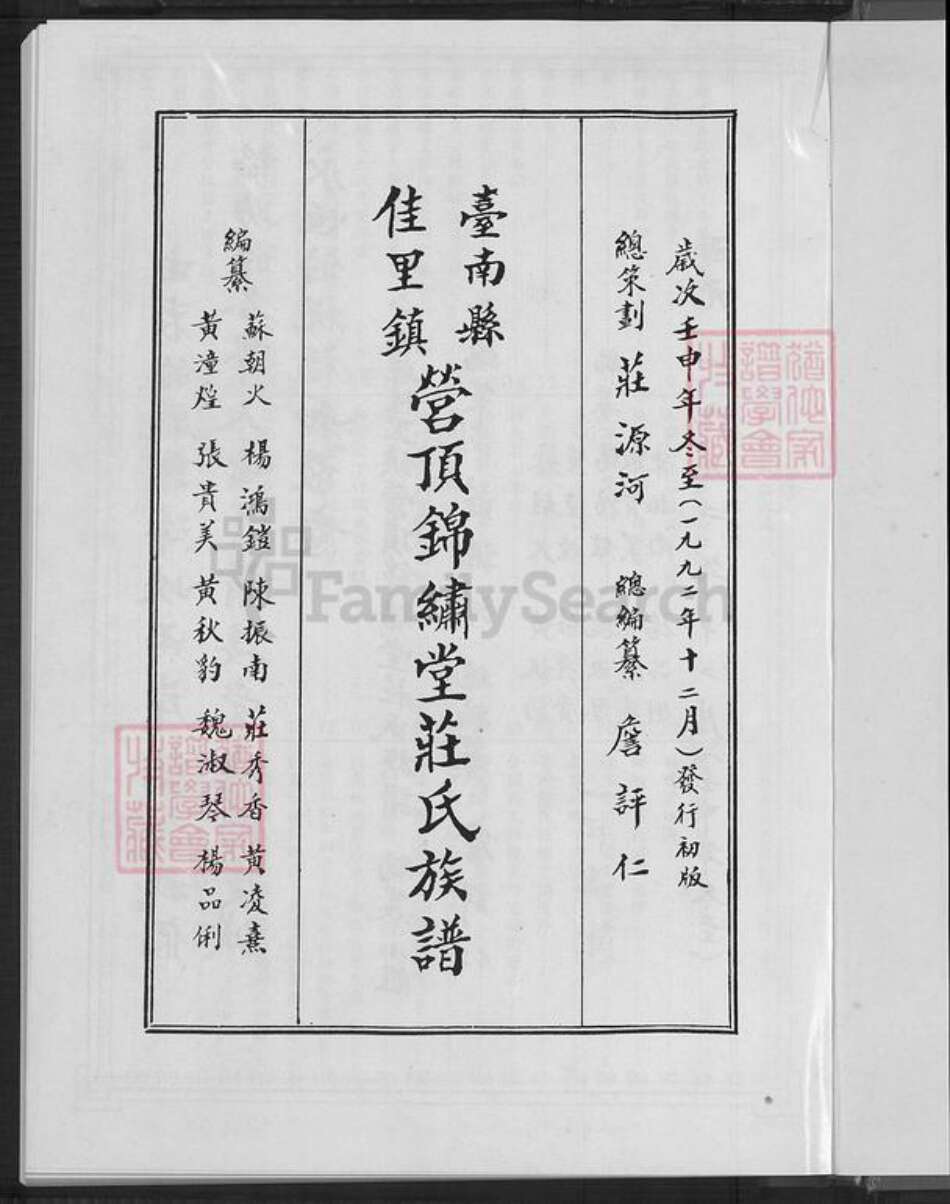 歲次壬申年冬至(一九九二年十二月)發行初版
總策劃 莊源河 總編纂 詹評仁
臺南縣
佳里鎮
營頂錦繡堂莊氏族譜
編纂
蘇朝火 楊鴻鎧 陳振南 莊秀香 黃凌熹
黃潼煌 張貴美 黃秋豹 魏淑琴 楊品俐
譜學會
譜學會
FamilySearch